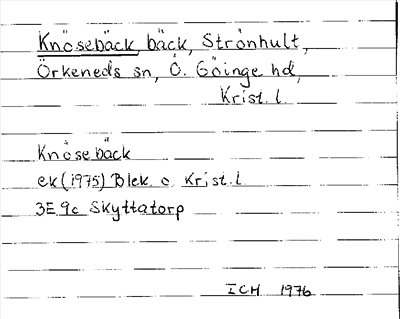 Knösebäck, bäck, Strönhult,
Örkeneds sn, Ö. Göinge hd,
Krist. l.
Knösebäck
ek (1975) Blek. o Krist. l
3E 9c Skyttatorp
ICH 1976